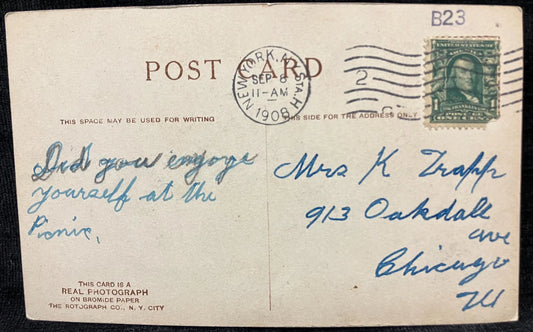 B23
POST CARD
NEW YORK, N.Y. STA. H
SEP 8
11-AM
1908
2
UNITED STATES OF
FRANKLIN
1
ONE CENT
THIS SPACE MAY BE USED FOR WRITING
THIS SIDE FOR THE ADDRESS ONLY
Did you engoye
yourself at the
Picnic,
Mrs K Trapp
913 Oakdall
ave
Chicago
Ill
THIS CARD IS A
REAL PHOTOGRAPH
ON BROMIDE PAPER
THE ROTOGRAPH CO., N. Y. CITY